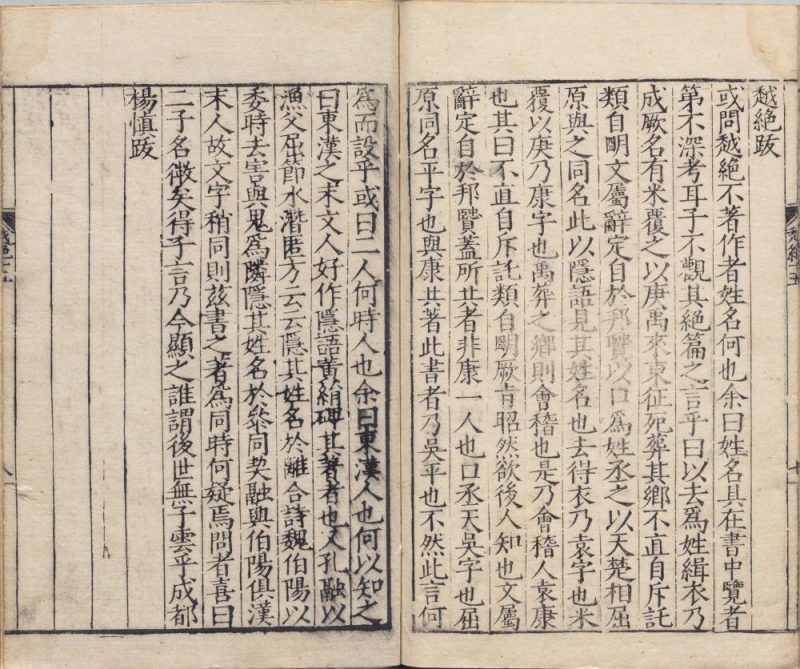 越絶跋
或問越絶不著作者姓名何也余曰姓名具在書中覽者
第不深考耳子不觀其絶篇之言乎曰以去爲姓緝衣乃
成厥名有米覆之以庚禹來東征死葬其鄉不直自斥託
類自明文屬辭定自於邦賢以口爲姓丞之以天楚相屈
原與之同名此以隱語見其姓名也去得衣乃袁字也米
覆以庚乃康字也禹葬之鄉則會稽也是乃會稽人袁康
也其曰不直自斥託類自明厥旨昭然欲後人知也文屬
辭定自於邦賢蓋所共者非康一人也口丞天吳字也屈
原同名平字也與康共著此書者乃吳平也不然此言何
爲而設乎或曰二人何時人也余曰東漢人也何以知之
曰東漢之末文人好作隱語黃絹碑其著者也又孔融以
漁父屈節水潛匿方云云隱其姓名於離合詩魏伯陽以
委時去害與鬼爲隣隱其姓名於叅同契融與伯陽俱漢
末人故文字稍同則兹書之著爲同時何疑焉問者喜曰
二子名微矣得子言乃今顯之誰謂後世無子雲乎成都
楊慎跋
越絶十五